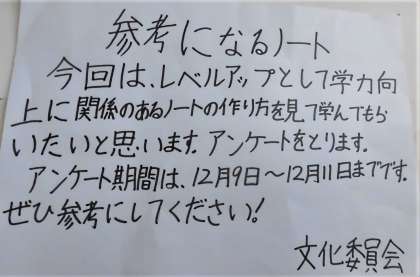 参考になるノート
今回は、レベルアップとして学力向
上に関係のあるノートの作り方を見て学んでもら
いたいと思います。アンケートをとります。
アンケート期間は、12月9日～12月11日までです。
ぜひ参考にしてください！
文化委員会